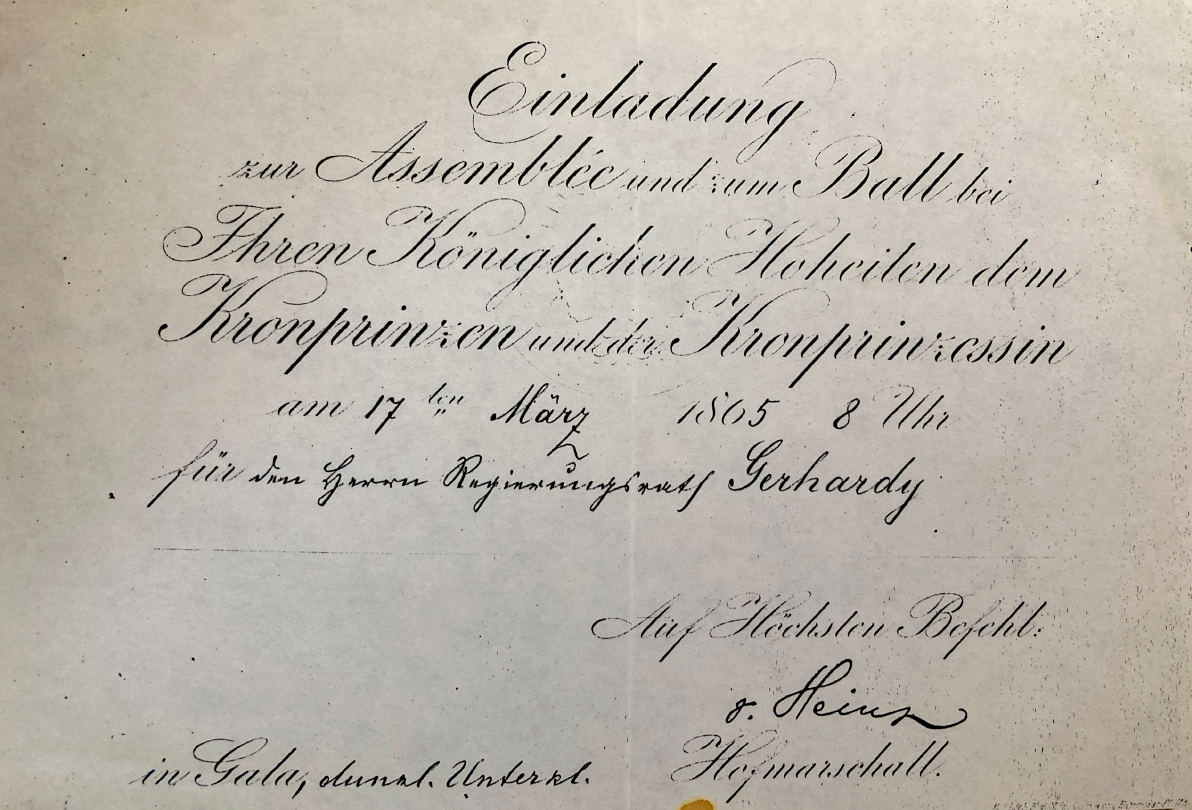 Einladung
zur Assemblée und zum Ball bei
Ihren Königlichen Hoheiten dem
Kronprinzen und der Kronprinzessin
am 17 ten März 1865 8 Uhr
für den Herrn Regierungsrath Gerhardy
Auf Höchsten Befehl:
v. Heinz
Hofmarschall.
in Gala, dunkl. Unterkl.